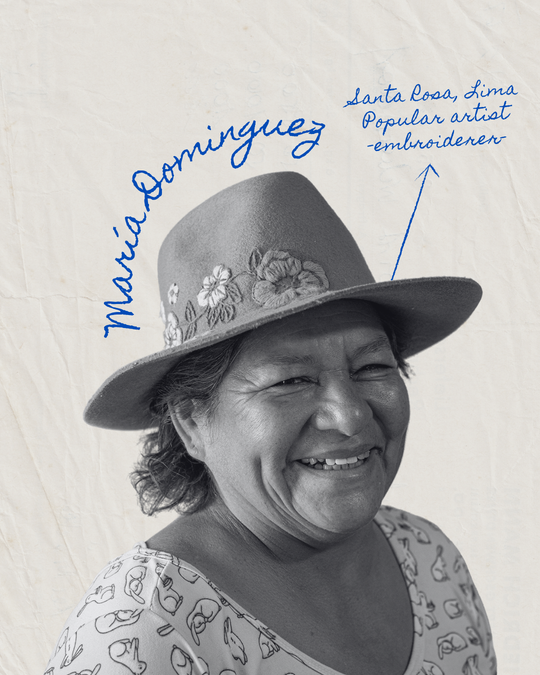 María Dominguez
Santa Rosa, Lima
Popular artist
-embroiderer-